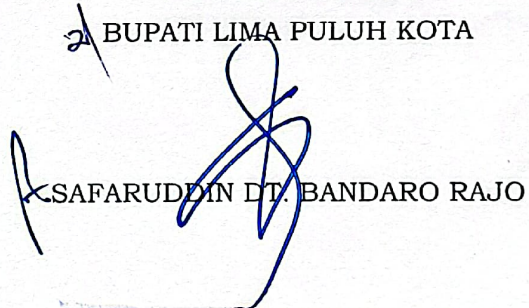 BUPATI LIMA PULUH KOTA
SAFARUDDIN DT. BANDARO RAJO